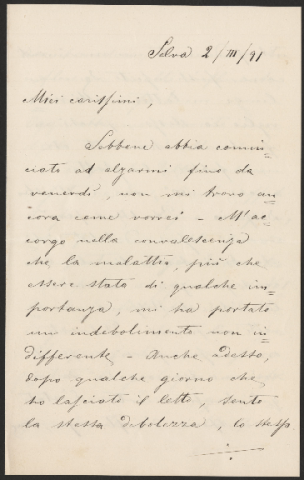 Selva 2/III/91
Miei carissimi,
Sebbene abbia comin=
ciato ad alzarmi fino da
venerdì, non mi trovo an=
cora come vorrei - M'ac=
corgo nella convalescenza
che la malattia, più che
essere stata di qualche im=
portanza, mi ha portato
un indebolimento non in=
differente - Anche adesso,
dopo qualche giorno che
ho lasciato il letto, sento
la stessa debolezza, lo stesso